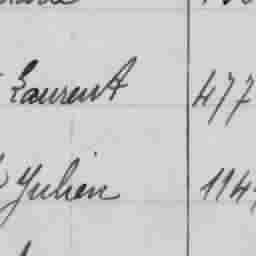 Laurent 477
Julien 114